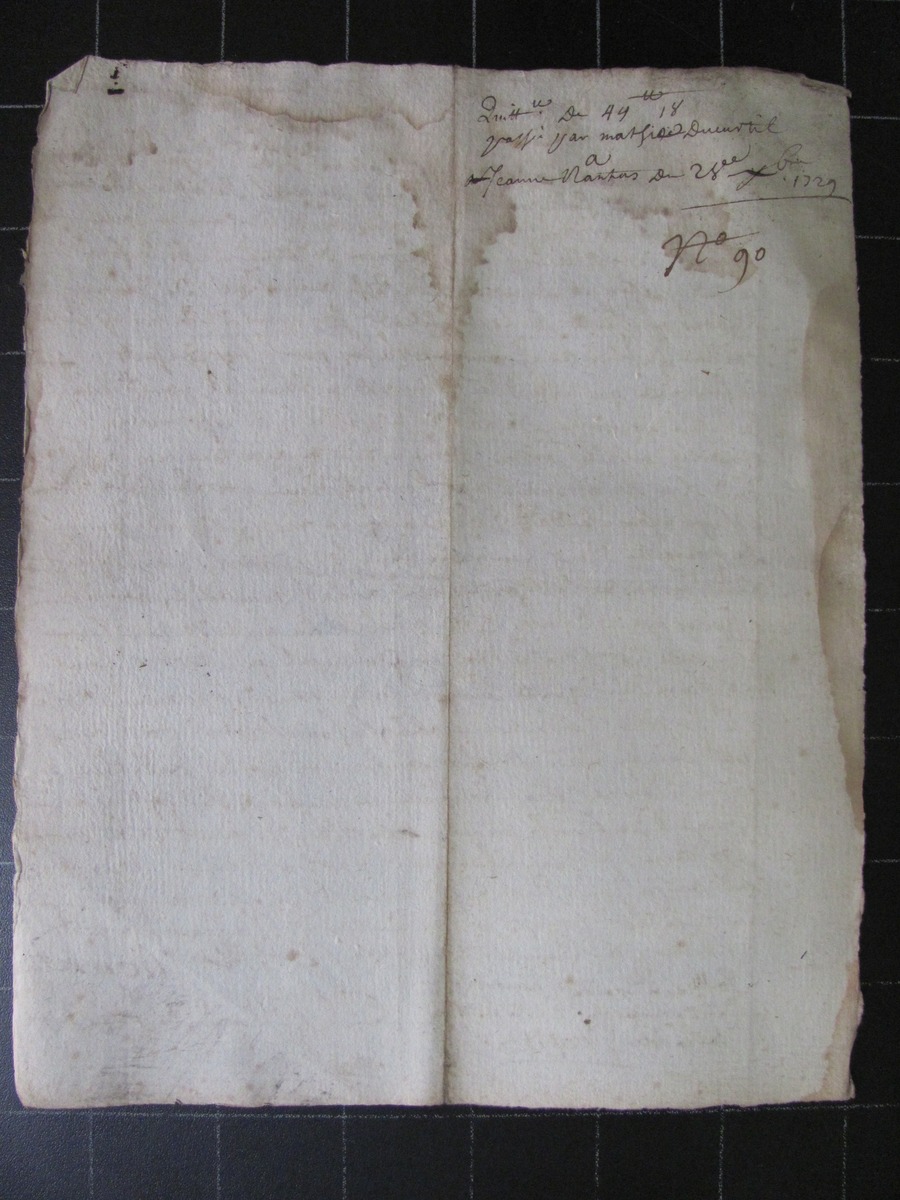 Quitt.ce De 49 tt 18
passé par mathieu Ducurtil
a
Jeanne Nantas du 28me xbre 1729
No 90